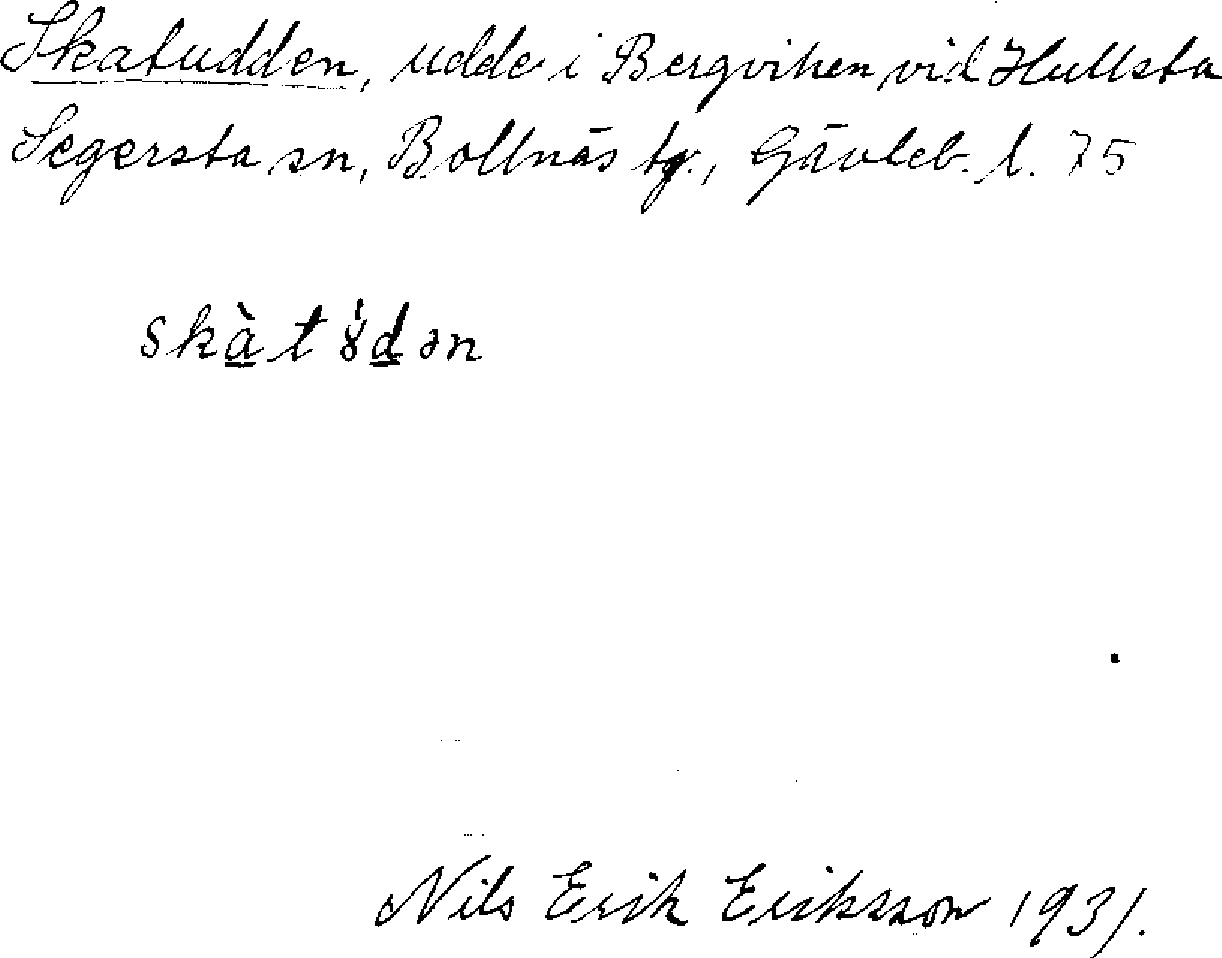 Skatudden, udde i Bergviken vid Hullsta
Segersta sn, Bollnäs tg., Gävleb. l. 75
skàt ȣ̇dən
Nils Erik Eriksson 1931.